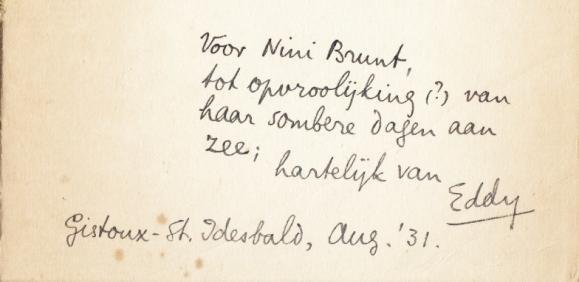 Voor Nini Brunt,
tot opvroolijking (?) van
haar sombere dagen aan
zee; hartelijk van
Eddy
Gistoux-St. Idesbald, Aug. '31.